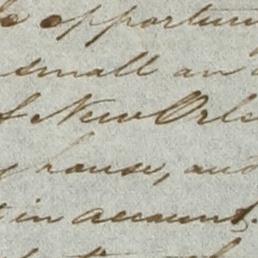 opportun
small an
New Orle
house, and
t in account.